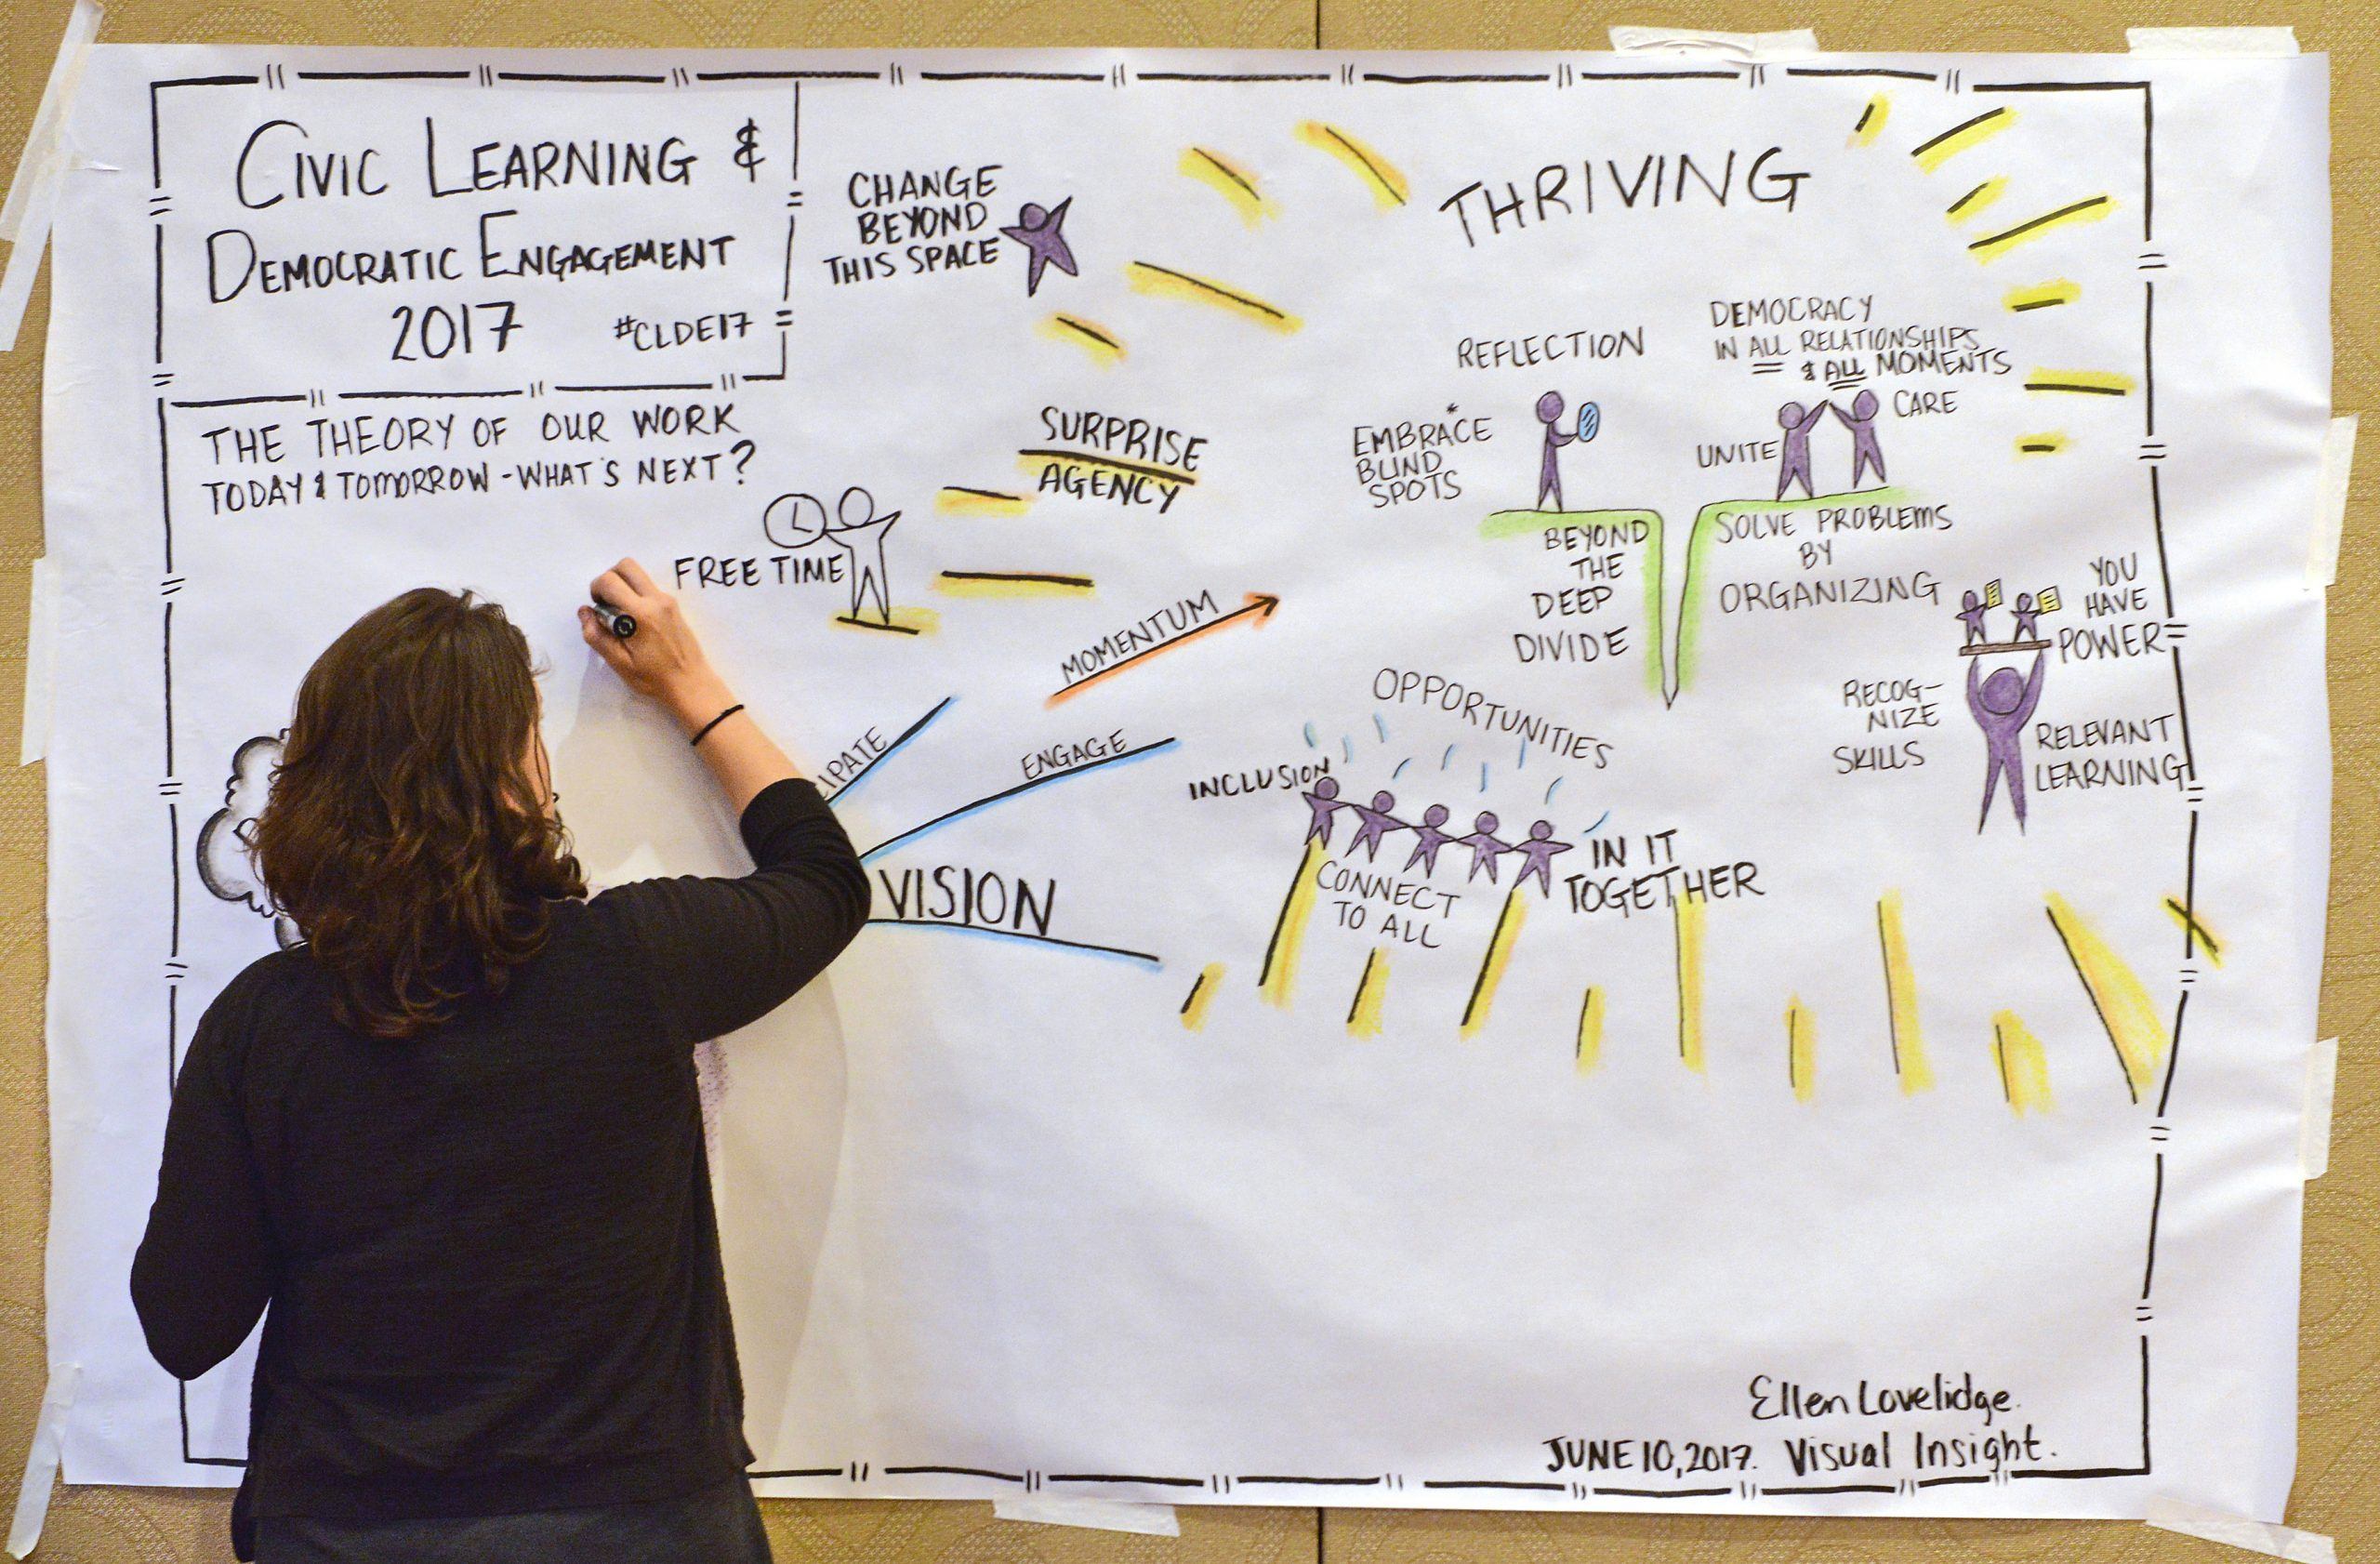 CIVIC LEARNING &
DEMOCRATIC ENGAGEMENT
2017 #CLDE17
THE THEORY OF OUR WORK
TODAY & TOMORROW - WHAT'S NEXT?
FREE TIME
CHANGE
BEYOND
THIS SPACE
SURPRISE
AGENCY
MOMENTUM
ENGAGE
VISION
THRIVING
REFLECTION
EMBRACE
BLIND
SPOTS
DEMOCRACY
IN ALL RELATIONSHIPS
& ALL MOMENTS
UNITE
CARE
BEYOND
THE
DEEP
DIVIDE
SOLVE PROBLEMS
BY
ORGANIZING
YOU
HAVE
POWER
RECOG-
NIZE
SKILLS
RELEVANT
LEARNING
OPPORTUNITIES
INCLUSION
CONNECT
TO ALL
IN IT
TOGETHER
Ellen Lovelidge.
JUNE 10, 2017. Visual Insight.